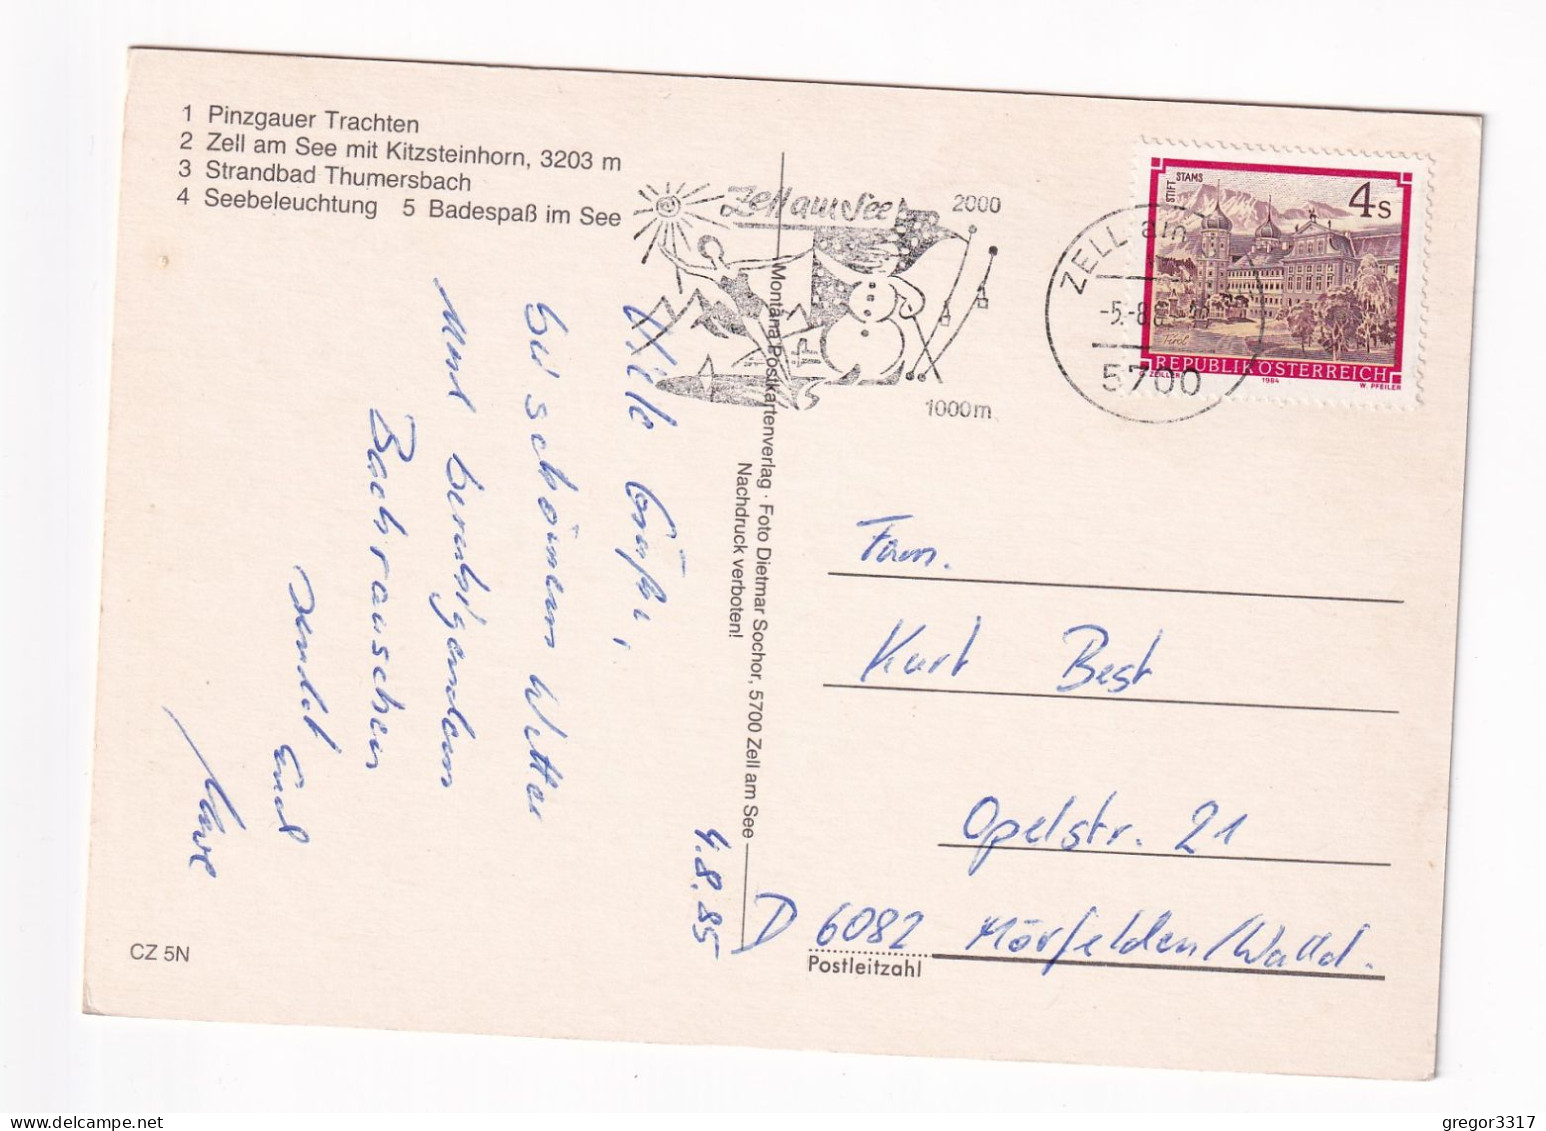 1 Pinzgauer Trachten
2 Zell am See mit Kitzsteinhorn, 3203 m
3 Strandbad Thumersbach
4 Seebeleuchtung 5 Badespaß im See
Zell am See
2000
1000m
ZELL am
-5.-8.8
5700
STIFT STAMS
4s
Tirol
REPUBLIK ÖSTERREICH
ZEILLER
1984
W. PFEILER
Montana Postkartenverlag · Foto Dietmar Sochor, 5700 Zell am See
Nachdruck verboten!
4.8.85
Viele Grüße,
bei schönem Wetter
und beruhigendem
Bachrauschen
sendet Euch
Fam.
Kurt Best
Opelstr. 21
D 6082 Mörfelden/Walld.
Postleitzahl
CZ 5N
gregor3317